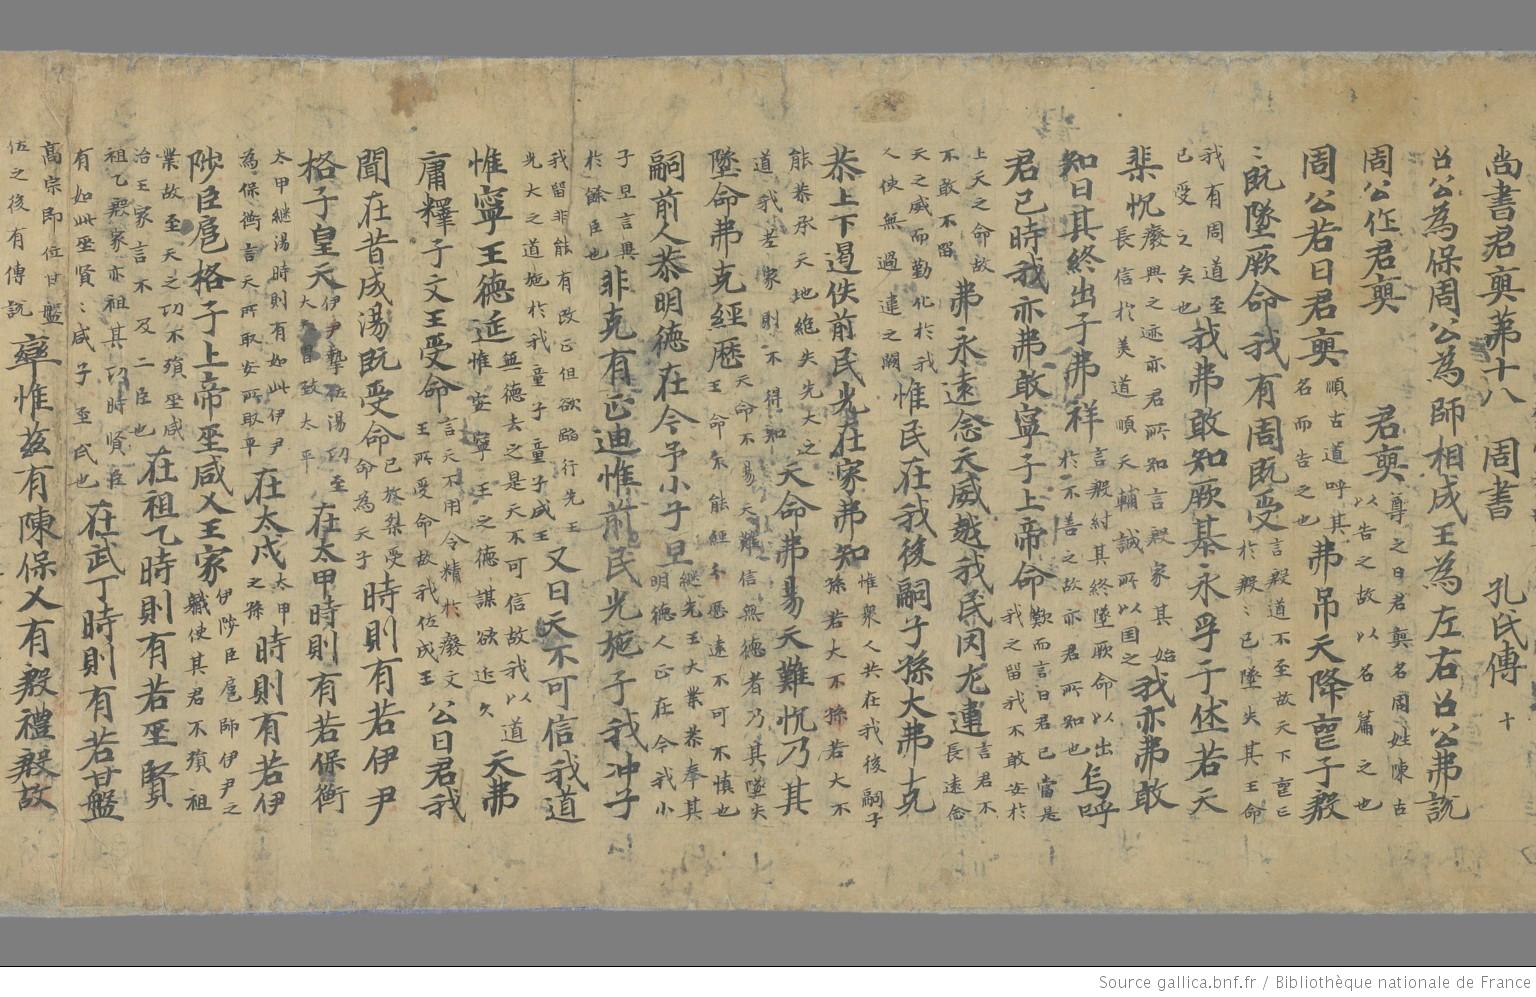 尚書君奭第十八 周書 孔氏傳 十
召公為保周公為師相成王為左右召公弗説
周公作君奭 君奭 尊之曰君奭名同姓陳古以告之故以名篇之也
周公若曰君奭 順古道呼其名而告之也 弗弔天降喪于殷
〻既墜厥命我有周既受 言殷道不至故天下喪亡於殷〻已墜失其王命
我有周道至已受之矣也 我弗敢知厥基永孚于休若天
棐忱 廢興之迹亦君所知言殷家其始長信於美道順天輔誠所以国之 我亦弗敢
知曰其終出于弗祥 言殷紂其終墜厥命以出於不善之故亦君所知也 烏呼
君已時我亦弗敢寧于上帝命 歎而言曰君已當是我之留我不敢安於
上天之命故不敢不留 弗永遠念天威越我民罔尤違 言君不長遠念
天之威而勤化於我人使無過違之闕 惟民在我後嗣子孫大弗克
恭上下遏佚前民光在家弗知 惟衆人共在我後嗣子孫若大不孫若大不
能恭承天地絶失先大之道我老家則不得知 天命弗易天難忱乃其
墜命弗克經歷 天命不易天難信無德者乃其墜失王命不能經久歷遠不可不慎也
嗣前人恭明德在今予小子旦 継先王大業恭奉其明德人正在今我小
子旦言異於餘臣也 非克有正迪惟前民光施于我冲子
我留非能有改正但欲蹈行先王光大之道施於我童子童子成王 又曰天不可信我道
惟寧王德延 無德去之是天不可信故我以道惟安寧王之德謀欲延久 天弗
庸釋于文王受命 言天不用令精於廢文王所受命故我佐成王 公曰君我
聞在昔成湯既受命 已放桀受命為天子 時則有若伊尹
格于皇天 伊尹摯佐湯功至大冒致太平 在太甲時則有若保衡
太甲継湯時則有如此伊尹為保衡言天所取安所取平 在太戊 太甲之孫 時則有若伊
陟臣扈格于上帝巫咸乂王家 伊陟臣扈師伊尹之軄使其君不殞祖
業故至天之功不殞巫咸治王家言不及二臣也 在祖乙時則有若巫賢
祖乙殷家亦祖其功時賢臣有如此巫賢〻咸子巫氏也 在武丁時則有若甘盤
高宗即位甘盤佐之後有傳説 率惟茲有陳保乂有殷禮殷故
Source gallica.bnf.fr / Bibliothèque nationale de France